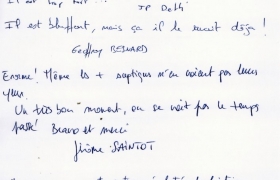 JP Delh
Il est bluffant, mais ça il le savait déjà !
Geoffroy BESNARD
Enorme ! Même les + septiques n'en voient pas leurs
yeux
Un très bon moment, on ne voit pas le temps
passé Bravo et merci
Jérôme SAINTOT